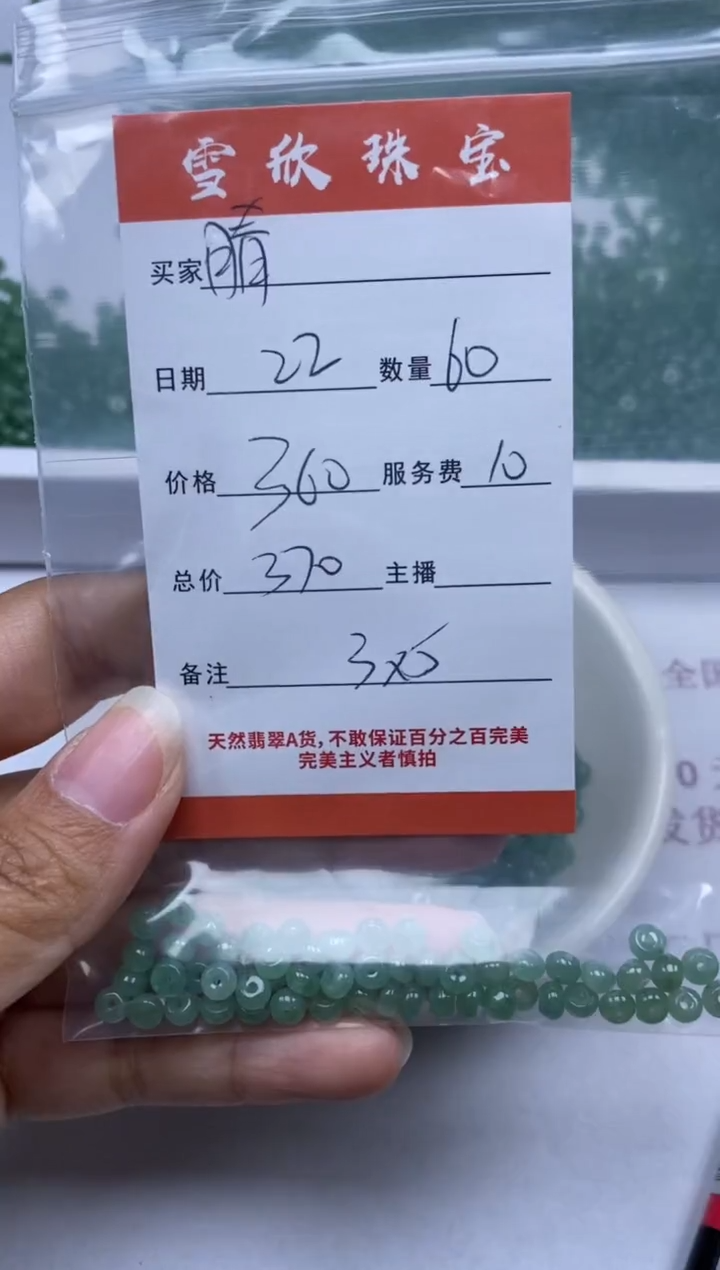 雪欣珠宝
买家 晴
日期 22 数量 60
价格 360 服务费 10
总价 370 主播
备注 3x5
天然翡翠A货，不敢保证百分之百完美
完美主义者慎拍
全国
0
发货